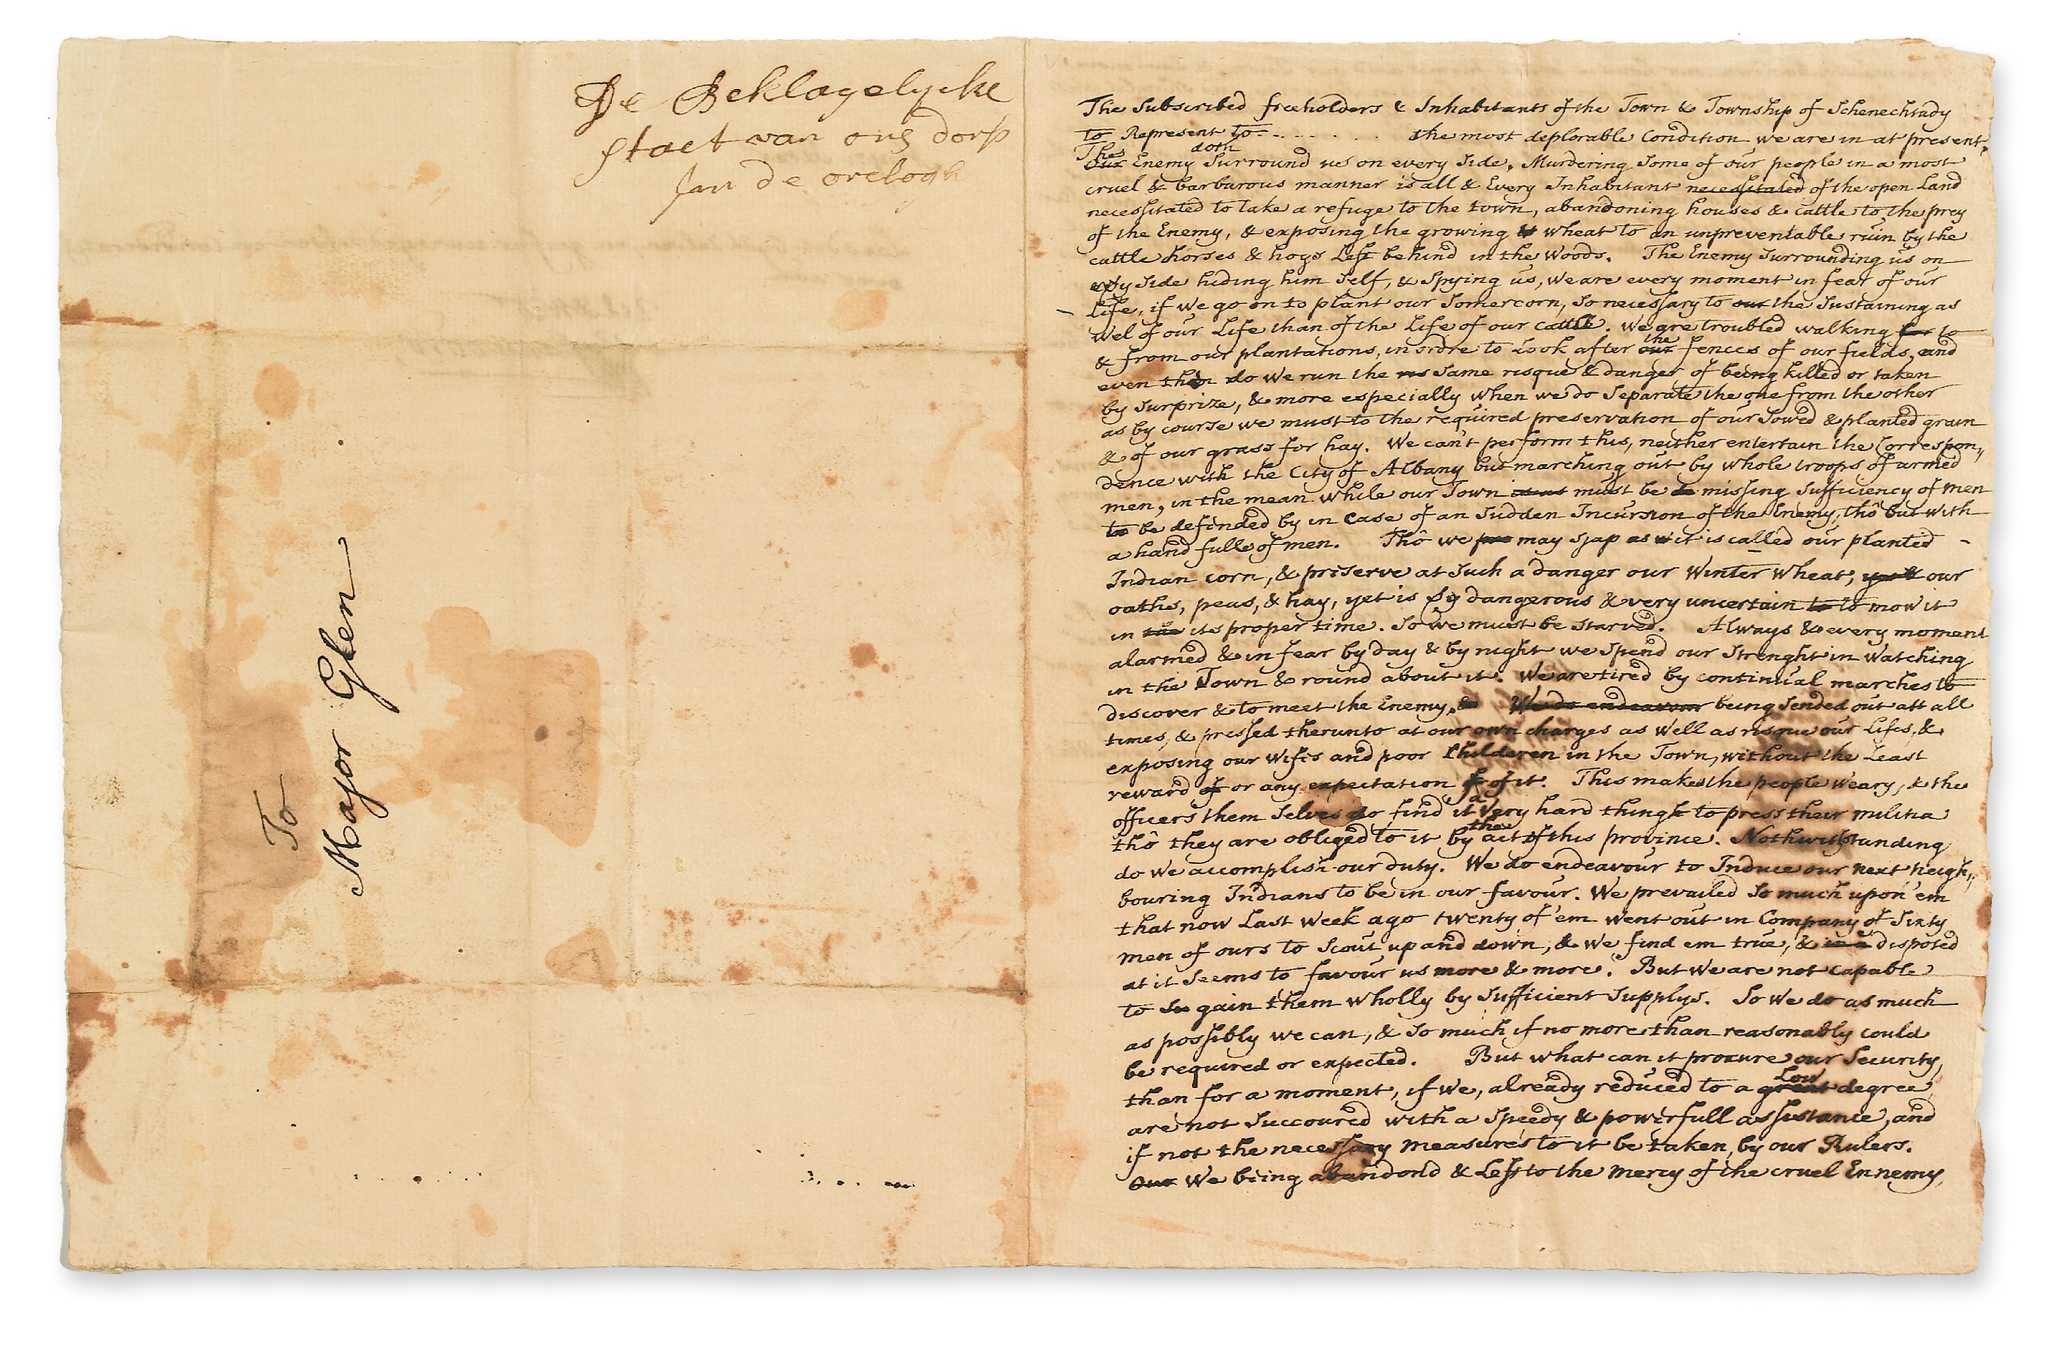 De Beklagelycke
staet van ons dorp
Jan de orelogh
To
Major Glen
The Subscribed freeholders & Inhabitants of the Town & Township of Schenechtady
to Represent to - . . . . . . . the most deplorable Condition we are in at present.
The doth
Our Enemy Surround us on every side. Murdering some of our people in a most
cruel & barbarous manner is all & Every Inhabitant necessitated of the open Land
necessitated to take a refuge to the town, abandoning houses & cattle to the prey
of the Enemy, & exposing the growing wheat to an unpreventable ruin by the
cattle horses & hogs Left behind in the Woods. The Enemy Surrounding us on
evry Side hiding him Self, & Spying us, we are every moment in fear of our
Life, if we go on to plant our Somercorn, So necessary to our the Sustaining as
wel of our Life than of the Life of our cattle. We are troubled walking for to
& from our plantations, in ordre to Look after our the fences of our fields, and
even then do we run the same risque & danger of being killed or taken
by Surprize, & more especially when we do Separate the one from the other
as by course we must to the required preservation of our Sowed & planted grain
& of our grass for hay. We can't perform this, neither entertain the Correspon,,
dence with the City of Albany but marching out by whole troops of armed
men, in the mean while our Town must be missing Sufficiency of men
to be defended by in Case of an Sudden Incursion of the Enemy, thô but with
a hand fulle of men. Thô we may Sjap as it is called our planted -
Indian corn, & preserve at Such a danger our Winter wheat, our
oathes, peas, & hay, yet is So dangerous & very uncertain to to mow it
in its proper time. So we must be starved. Always & every moment
alarmed & in fear by day & by night we Spend our Strenght in Watching
in the Town & round about it. We are tired by continual marches to
discover & to meet the Enemy, & We do endeavour being Sended out att all
times, & pressed therunto at our own charges as well as risque our Lifes, &
exposing our Wifes and poor Childeren in the Town, without the Least
reward of or any expectation of it. This makes the people Weary, & the
officers them Selves do find it a Very hard thingh to press their militia
thô they are obliged to it by the act of this province. Nothwithstanding
do we accomplish our duty. We do endeavour to Induce our next neigh,,
bouring Indians to be in our favour. We prevailed So much upon 'em
that now Last week ago twenty of 'em went out in Company of Sixty
men of ours to Scout up and down, & we find em true, & disposed
at it Seems to favour us more & more. But we are not capable
to gain them wholly by Sufficient Supplys. So we do as much
as possibly we can, & So much if no more than reasonably could
be required or expected. But what can it procure our Security,
than for a moment, if we, already reduced to a great Low degree
are not Succoured with a Speedy & powerfull assistance, and
if not the necessary measures to it be taken, by our Rulers.
Our We being abandond & Left to the mercy of the cruel Ennemy,